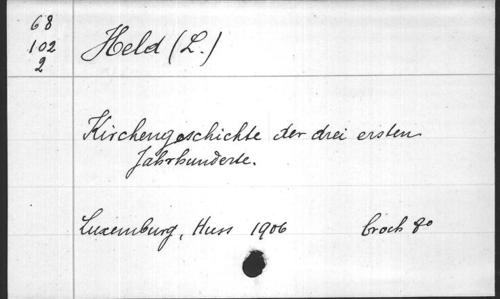 68
102
2
Held (L.)
Kirchengeschichte der drei ersten
Jahrhunderte.
Luxemburg, Huss 1906 broch 8o